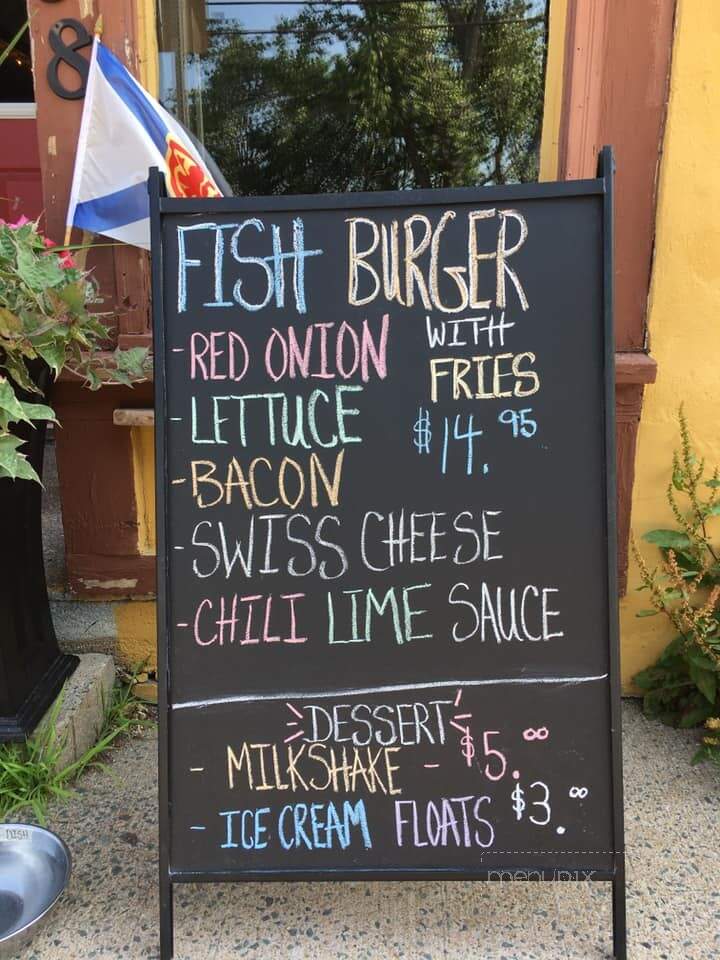 8
FISH BURGER
-RED ONION
WITH
FRIES
$14.95
-LETTUCE
-BACON
-SWISS CHEESE
-CHILI LIME SAUCE
DESSERT
- MILKSHAKE - $5.00
- ICE CREAM FLOATS $3.00
DISH
menupix